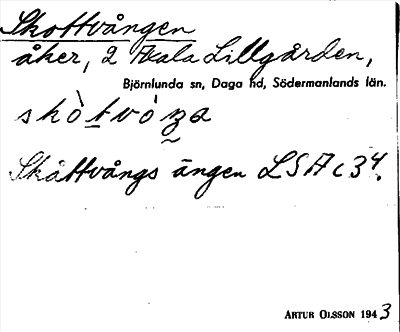 Skottvången
åker, 2 Axala Lillgården,
Björnlunda sn, Daga hd, Södermanlands län.
skò̀tvòŋa
Skåttvångs ängen LSA C34.
ARTUR OLSSON 1943